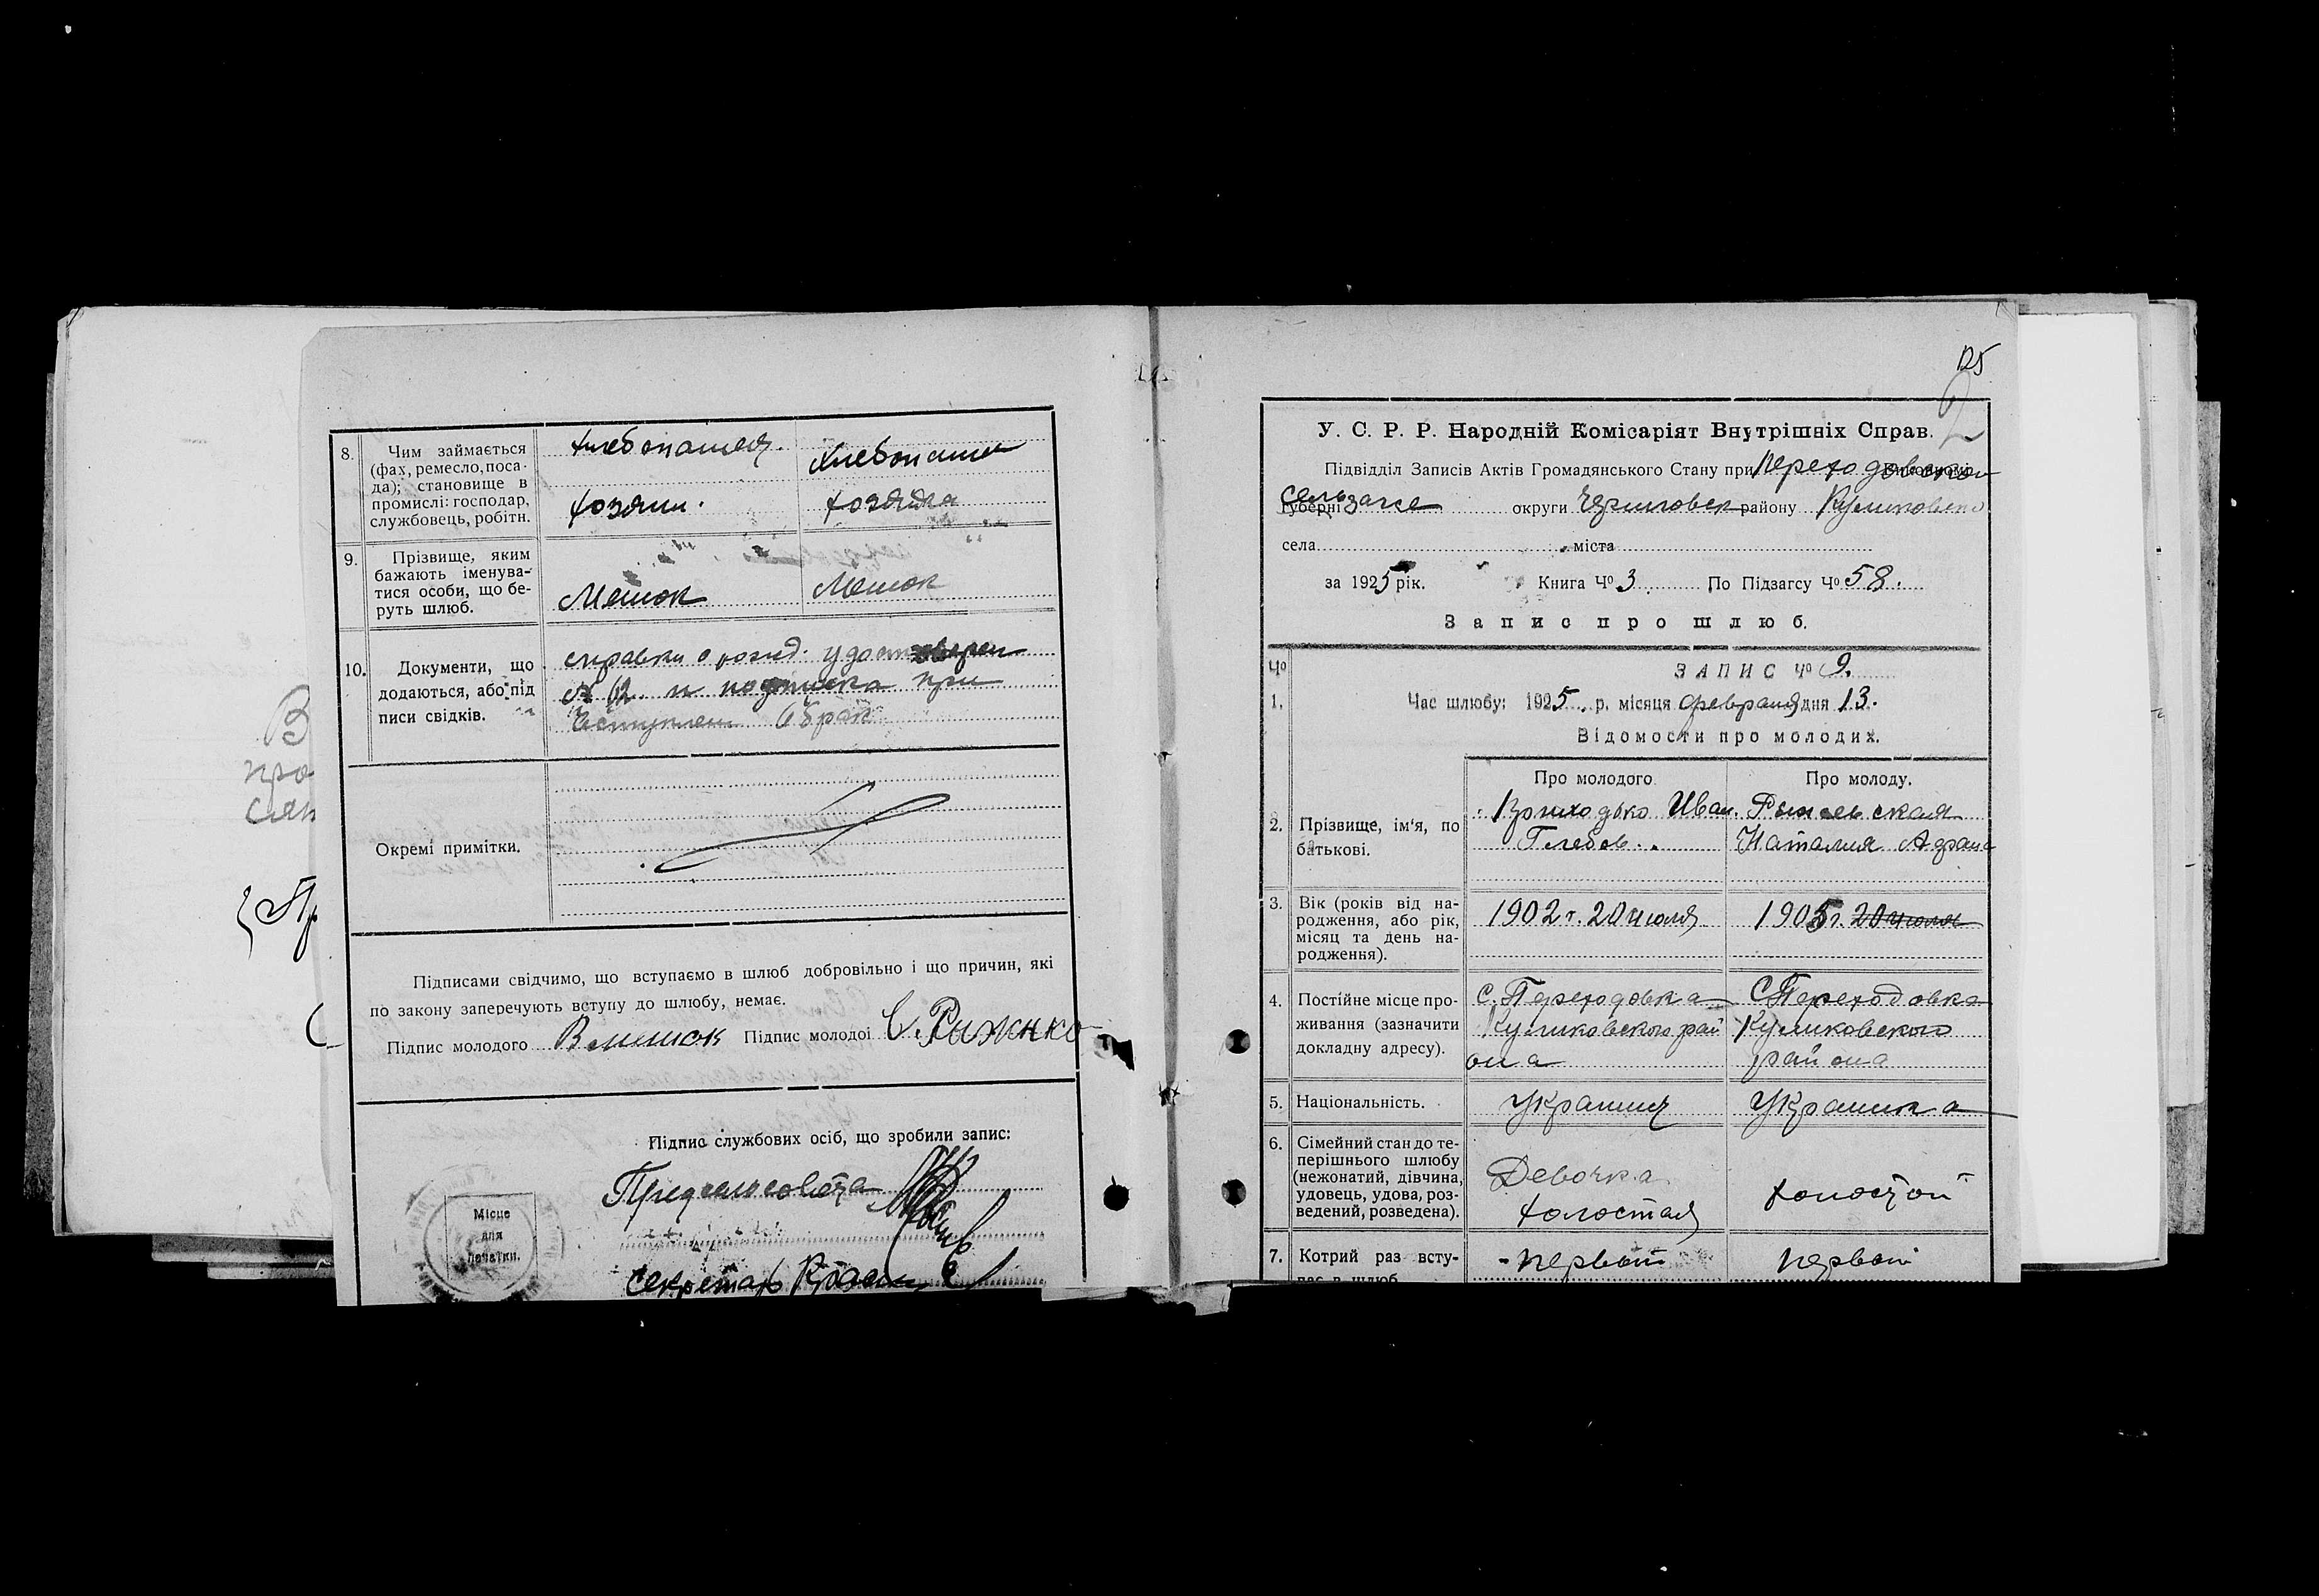 В
про
сян
8.
Чим займається
(фах, ремесло, поса-
да); становище в
промислі: господар,
службовець, робітн.
хлебопашец. хлебопаш
хозяин. хозяйка
9.
Прізвище, яким
бажають іменува-
тися особи, що бе-
руть шлюб.
Мешок Мешок
10.
Документи, що
додаються, або під
писи свідків.
справки о рожд. удостоверен
и подписка при
вступлен в брак
Окремі примітки.
Підписами свідчимо, що вступаємо в шлюб добровільно і що причин, які
по закону заперечують вступу до шлюбу, немає.
Підпис молодого В Мешок Підпис молодоі С. Рыженко
Підпис службових осіб, що зробили запис:
Предсельсовета
Місце
для
печатки.
Секретар
125
У. С. Р. Р. Народній Комісаріят Внутрішніх Справ.
Підвідділ Записів Актів Громадянського Стану при Переходовском
губерні сельзагсе округи Черниговск району Куликовско
села міста
за 1925 рік. Книга Ч⁰ 3 По Підзагсу Ч⁰ 58.
Запис про шлюб.
Ч⁰
ЗАПИС Ч⁰ 9.
1.
Час шлюбу: 1925 р. місяця февраля дня 13.
Відомости про молодих.
Про молодого Про молоду.
2.
Прізвище, ім'я, по
батькові.
Приходько Иван Глебов.
Наталия
3.
Вік (років від на-
родження, або рік,
місяц та день на-
родження).
1902 г. 20 июля 1905 г. 20 июля
4.
Постійне місце про-
живання (зазначити
докладну адресу).
с. Переходовка
Куликовского рай
она
С Переходовка
Куликовского
района
5.
Національність.
Украинец Украинка
6.
Сімейний стан до те-
перішнього шлюбу
(нежонатий, дівчина,
удовець, удова, роз-
ведений, розведена).
Девочка
холостая
холостой
7.
Котрий раз всту-
пає в шлюб
первый первый